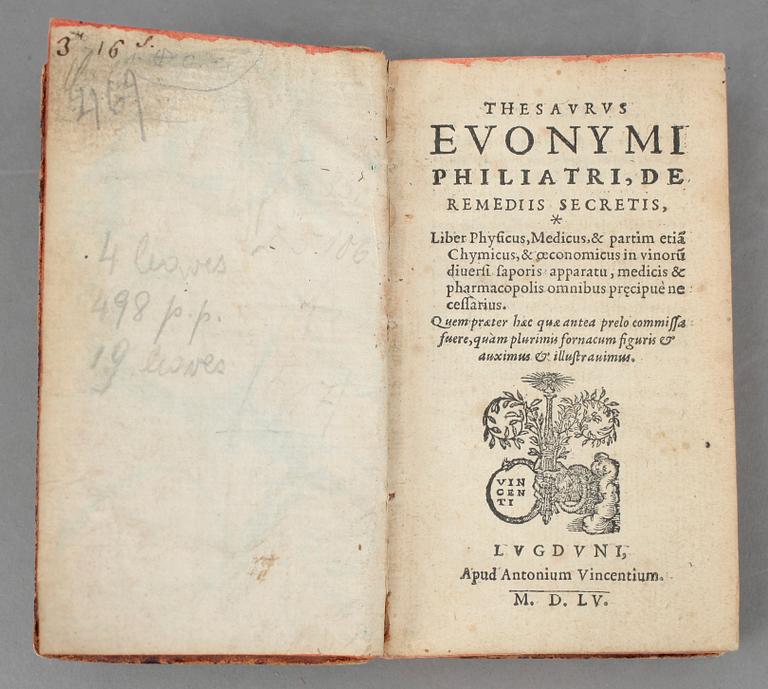 3 16 s.
4 leaves
498 p.p.
19 leaves
THESAVRVS
EVONYMI
PHILIATRI, DE
REMEDIIS SECRETIS,
*
Liber Physicus, Medicus, & partim etiã
Chymicus, & œconomicus in vinorũ
diuersi saporis apparatu, medicis &
pharmacopolis omnibus pręcipuè ne
cessarius.
Quem præter hæc quæ antea prelo commissa
fuere, quàm plurimis fornacum figuris &
auximus & illustrauimus.
VIN
CEN
TI
LVGDVNI,
Apud Antonium Vincentium.
M. D. LV.